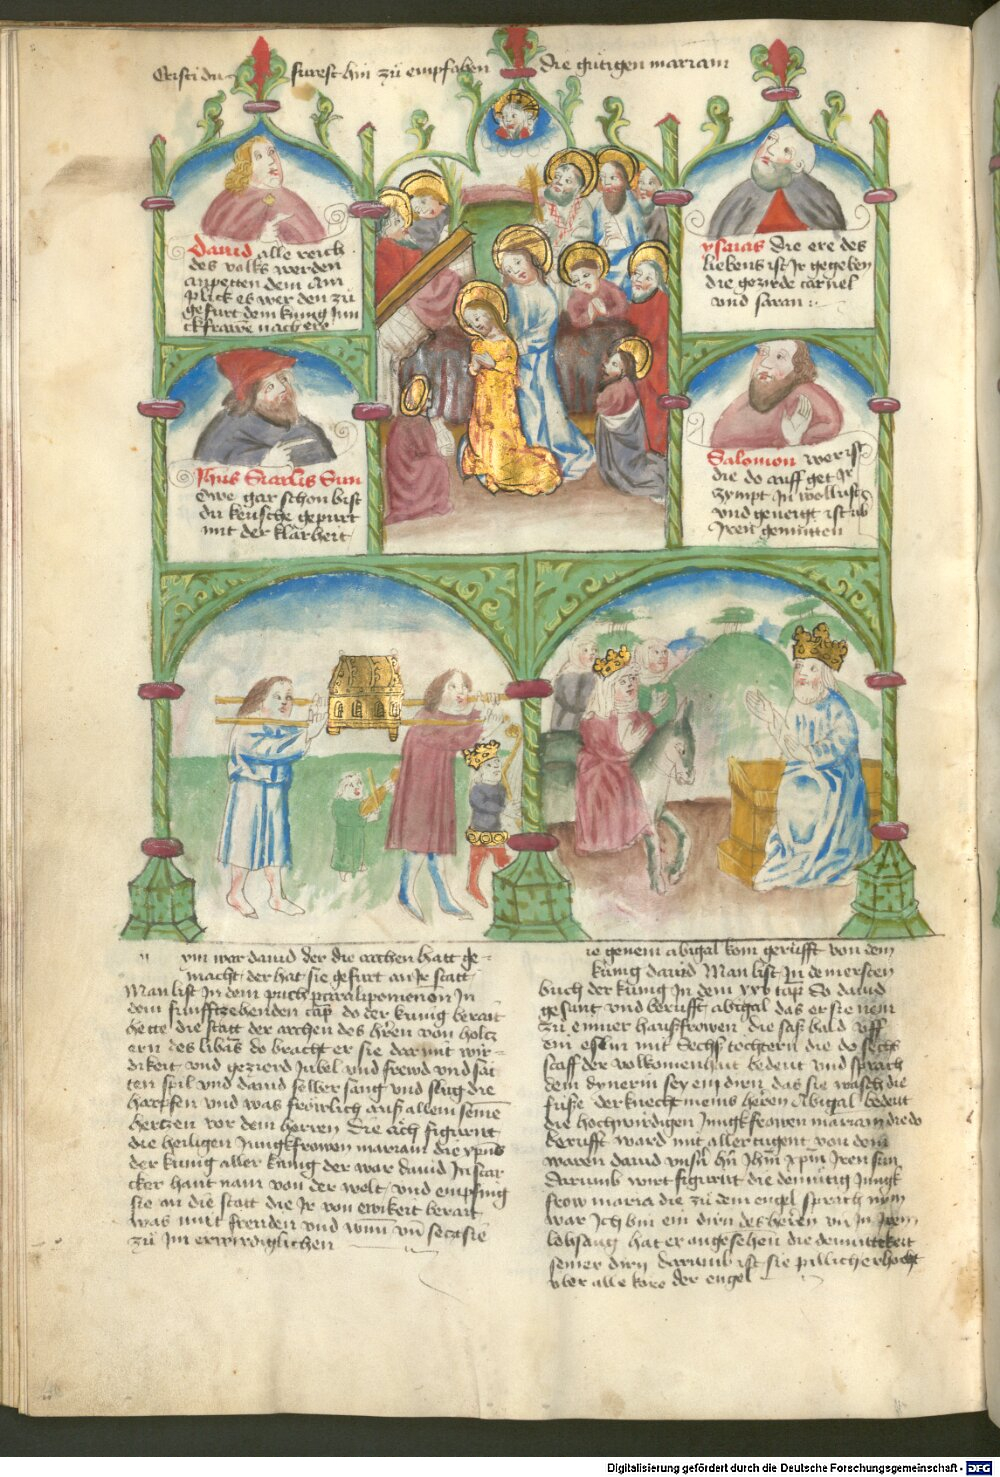 Cristi du furest hin zu empfahen die gütigen mariam
Dauid alle reich
des volks werden
anpetten dem
plick es wer den zu
gefurt dem kunig Jun
ckfrawē nach ere
ysaias die ere des
liebens ist Jr gegeben
die gezirde carmel
vnd saran
Jhūs Sirachs Sun
Owe gar schon bist
du keusche gepurt
mit der klarheit
Salomon wer ist
die do auff get Jr
zympt Jn wollust
vnd geneigt ist
Jren gemutten
war dauid der die archen hatt ge-
macht der hat sie gefurt an Jr statt
Man list Jn dem puch paralipomenon Jn
dem funfftzehenden cap̄ do der kunig berait
hette die statt der archen des hēren von holcz
ern des libans do bracht er sie dar mit wir-
dikeit vnd gezierd Jubel vnd frewd vnd sai
ten spil vnd dauid selber sang vnd slug die
harpfen vnd was frölich auß allem seinē
hertzen vor dem herren Die ach figurirt
die heiligen Jungkfrowen mariam die xpūs
der kunig aller kunig der war dauid Jn star
cker hant nam von der welt vnd empfing
sie an die statt die Jr von ewikeit berait
was mit freuden vnd vnd seczt sie
zu Jm erwirdiglichen
kom gerufft von dem
kunig dauid Man list Jn dem ersten
buch der kunig Jn dem xxv cap̄ So dauid
gesant vnd berufft abigal das er sie nem
zu einner haußfrowen die saß bald vff
ein eselin mit Sechs tochtern die do sechs
der volkomenhait bedeut vnd sprach
dein dynerin sey ein dirn das sie wasch die
fuße der knecht meins hēren Abigal bedeut
die hochwirdigen Jungkfrowen mariam die do
berufft ward mit aller tugent von dem
waren dauid vnsn̄ hn̄ Jhm̄ xpm̄ Jren sun
Darumb wirt figurirt die demutig Jungk
frow maria die zu dem engel sprach nym
war Jch bin ein dirn des hēren vn̄ Jn Jrem
lobsang hat er angesehen die demuttikeit
seiner dirn darumb ist sie pillich erhocht
vber alle kore der engel
Digitalisierung gefördert durch die Deutsche Forschungsgemeinschaft - DFG